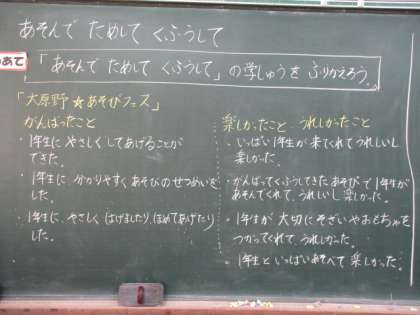 あそんで ためして くふうして
めあて
「あそんで ためして くふうして」の学しゅうを ふりかえろう。
「大原野☆あそびフェス」
がんばったこと
・1年生に やさしくしてあげることが
できた。
・1年生に、分かりやすく あそびのせつめいをし
た。
・1年生に、やさしく はげましたり、ほめてあげたり
した。
楽しかったこと うれしかったこと
・いっぱい1年生が 来てくれてうれしいし
楽しかった。
・がんばってくふうしてきた あそびで1年生が
あそんでくれて、うれしいし 楽しかった。
・1年生が 大切に そざいやおもちゃを
つかってくれて、うれしかった。
・1年生と いっぱいあそべて 楽しかった。